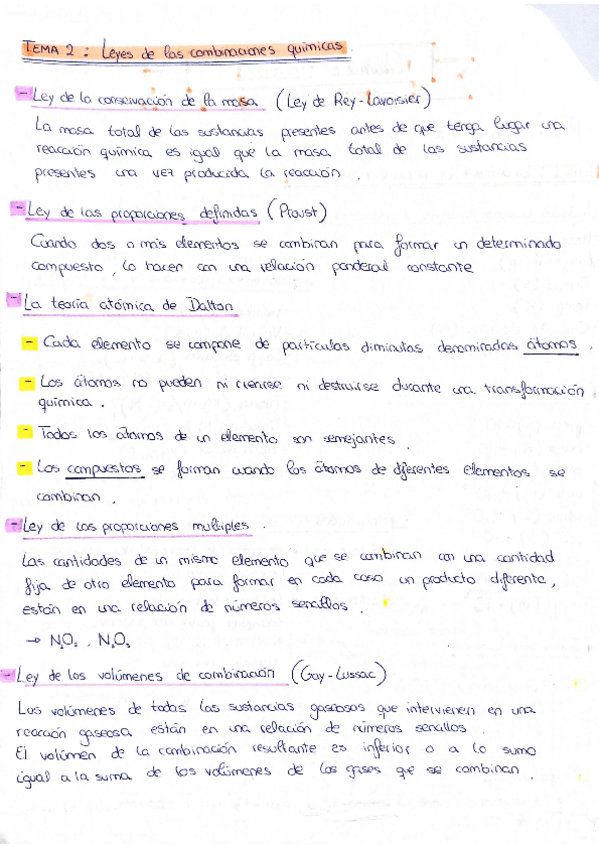 TEMA 2 : Leyes de las combinaciones químicas.
- Ley de la conservación de la masa (Ley de Rey-Lavoisier)
La masa total de las sustancias presentes antes de que tenga lugar una
reacción química es igual que la masa total de las sustancias
presentes una vez producida la reacción.
- Ley de las proporciones definidas (Proust)
Cuando dos o más elementos se combinan para formar un determinado
compuesto, lo hacen con una relación ponderal constante
- La teoría atómica de Dalton
- Cada elemento se compone de partículas diminutas denominadas átomos.
- Los átomos no pueden ni crearse ni destruirse durante una transformación
química.
- Todos los átomos de un elemento son semejantes.
- Los compuestos se forman cuando los átomos de diferentes elementos se
combinan.
- Ley de las proporciones multiples.
Las cantidades de un mismo elemento que se combinan con una cantidad
fija de otro elemento para formar en cada caso un producto diferente,
están en una relación de números sencillos.
→
- Ley de los volúmenes de combinación (Gay-Lussac)
Los volúmenes de todas las sustancias gaseosas que intervienen en una
reacción gaseosa están en una relación de números sencillos.
El volúmen de la combinación resultante es inferior o a lo sumo
igual a la suma de los volúmenes de los gases que se combinan.